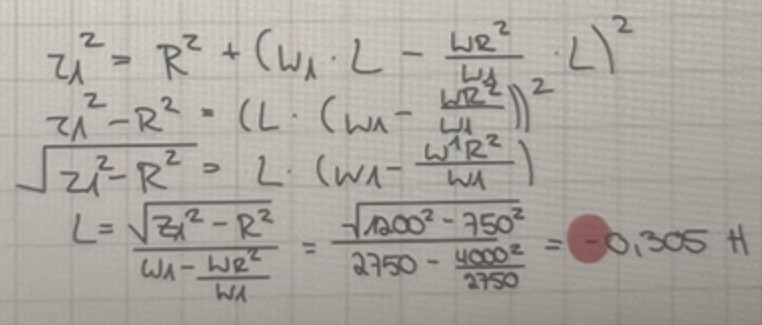 Z1² = R² + (W1 · L - WR²/W1 · L)²
Z1² - R² = (L · (W1 - WR²/W1))²
√(Z1² - R²) = L · (W1 - W1R²/W1)
L = √(Z1² - R²) / (W1 - WR²/W1) = √(1200² - 750²) / (2750 - 4000²/2750) = -0,305 H